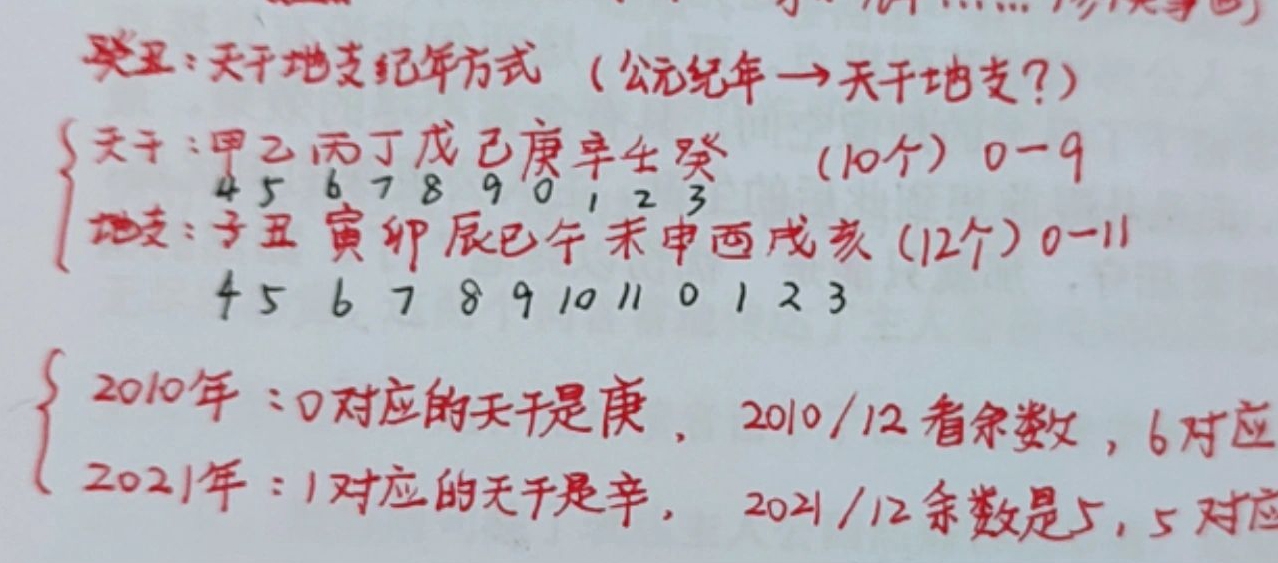 癸丑：天干地支纪年方式 （公元纪年→天干地支？）
天干：甲乙丙丁戊己庚辛壬癸 （10个）0-9
4 5 6 7 8 9 0 1 2 3
地支：子丑寅卯辰巳午未申酉戌亥（12个）0-11
4 5 6 7 8 9 10 11 0 1 2 3
2010年：0对应的天干是庚， 2010/12看余数，6对应
2021年：1对应的天干是辛， 2021/12余数是5，5对应